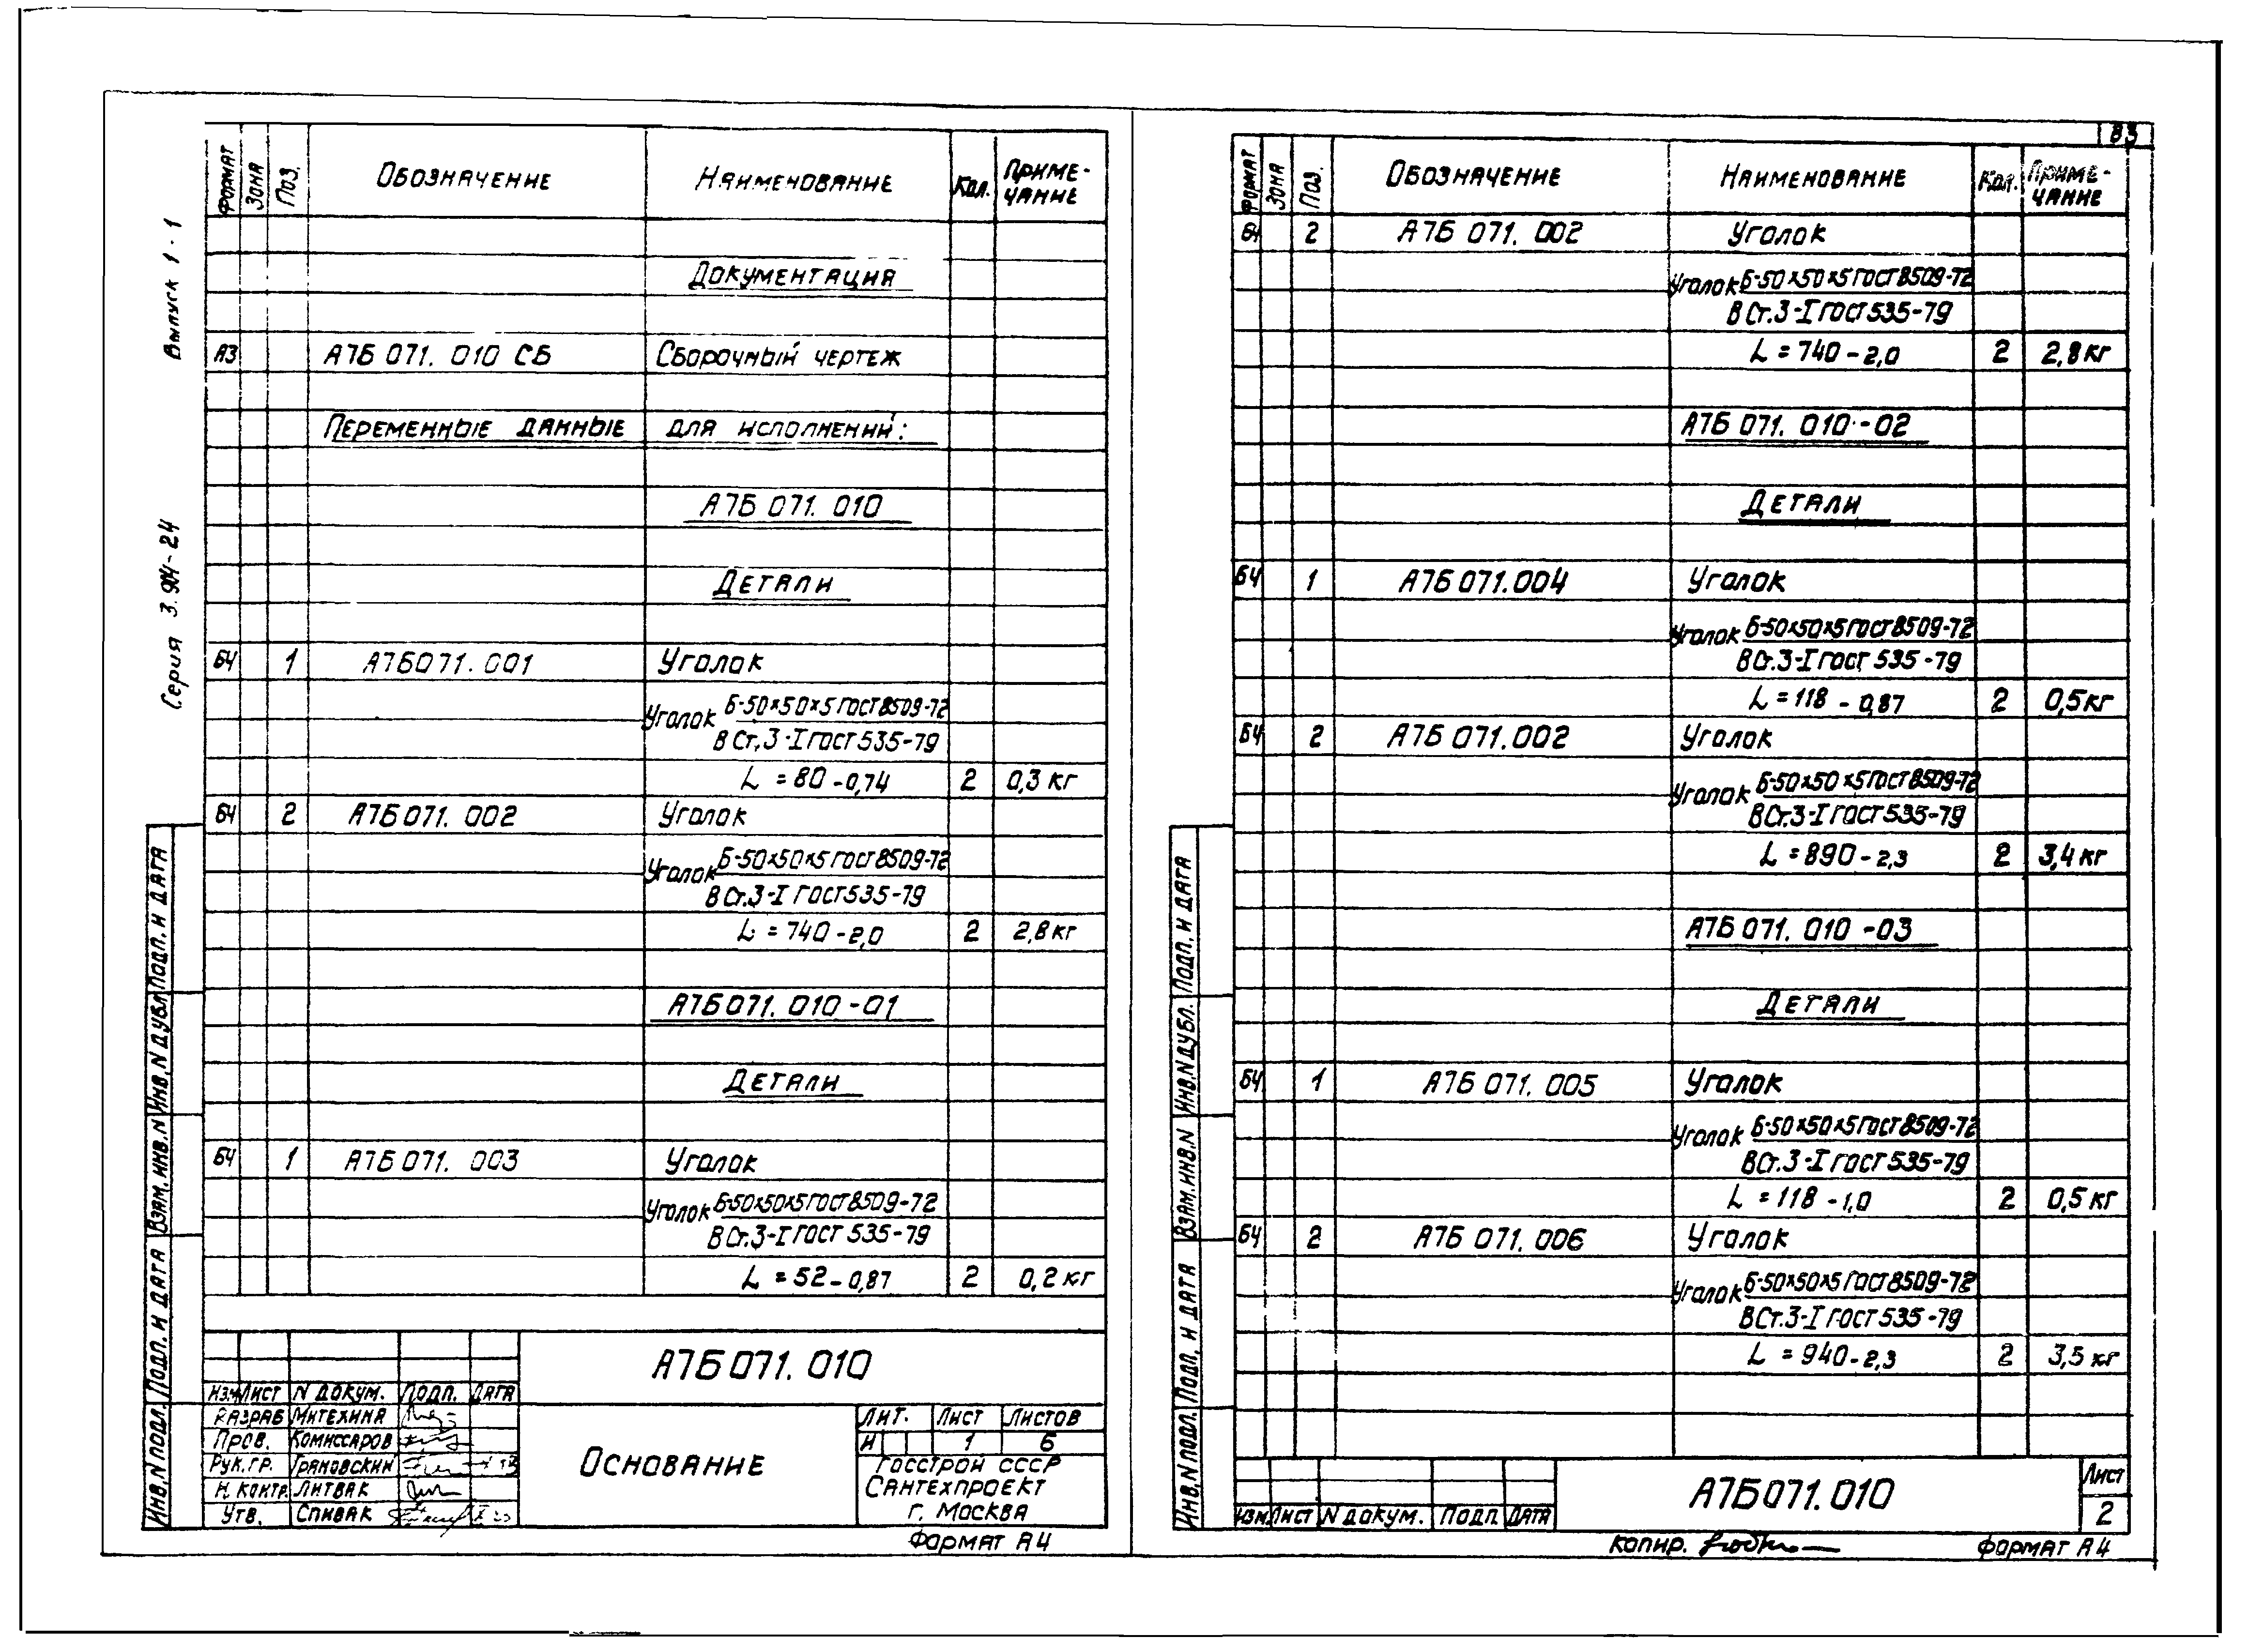 Серия 3.904-24 Выпуск 1-1
Формат Зона Поз. Обозначение Наименование Кол. Примечание
Документация
А3 А7Б 071.010 СБ Сборочный чертеж
Переменные данные для исполнений:
А7Б 071.010
Детали
БЧ 1 А7Б071.001 Уголок
Уголок Б-50×50×5 ГОСТ 8509-72
В Ст.3-I ГОСТ 535-79
L = 80 - 0,74 2 0,3 кг
БЧ 2 А7Б071.002 Уголок
Уголок Б-50×50×5 ГОСТ 8509-72
В Ст.3-I ГОСТ 535-79
L = 740 - 2,0 2 2,8 кг
А7Б071.010-01
Детали
БЧ 1 А7Б071.003 Уголок
Уголок Б-50×50×5 ГОСТ 8509-72
В Ст.3-I ГОСТ 535-79
L = 52 - 0,87 2 0,2 кг
Инв.N подл. Подп. и дата Взам.инв.N Инв.N дубл. Подп. и дата
А7Б071.010
Изм Лист N докум. Подп. Дата
Разраб Митехина
Пров. Комиссаров
Рук.гр. Грановский
Н.контр. Литвак
Утв. Спивак
Основание
Лит. Лист Листов
И 1 6
Госстрой СССР
Сантехпроект
г. Москва
Формат А4
83
Формат Зона Поз. Обозначение Наименование Кол. Примечание
БЧ 2 А7Б 071.002 Уголок
Уголок Б-50×50×5 ГОСТ 8509-72
В Ст.3-I ГОСТ 535-79
L = 740 - 2,0 2 2,8 кг
А7Б 071.010-02
Детали
БЧ 1 А7Б 071.004 Уголок
Уголок Б-50×50×5 ГОСТ 8509-72
В Ст.3-I ГОСТ 535-79
L = 118 - 0,87 2 0,5 кг
БЧ 2 А7Б 071.002 Уголок
Уголок Б-50×50×5 ГОСТ 8509-72
В Ст.3-I ГОСТ 535-79
L = 890 - 2,3 2 3,4 кг
А7Б 071.010-03
Детали
БЧ 1 А7Б 071.005 Уголок
Уголок Б-50×50×5 ГОСТ 8509-72
В Ст.3-I ГОСТ 535-79
L = 118 - 1,0 2 0,5 кг
БЧ 2 А7Б 071.006 Уголок
Уголок Б-50×50×5 ГОСТ 8509-72
В Ст.3-I ГОСТ 535-79
L = 940 - 2,3 2 3,5 кг
Инв.N подл. Подп. и дата Взам.инв.N Инв.N дубл. Подп. и дата
Изм. Лист N докум. Подп. Дата
А7Б071.010
Лист
2
Копир.
Формат А4